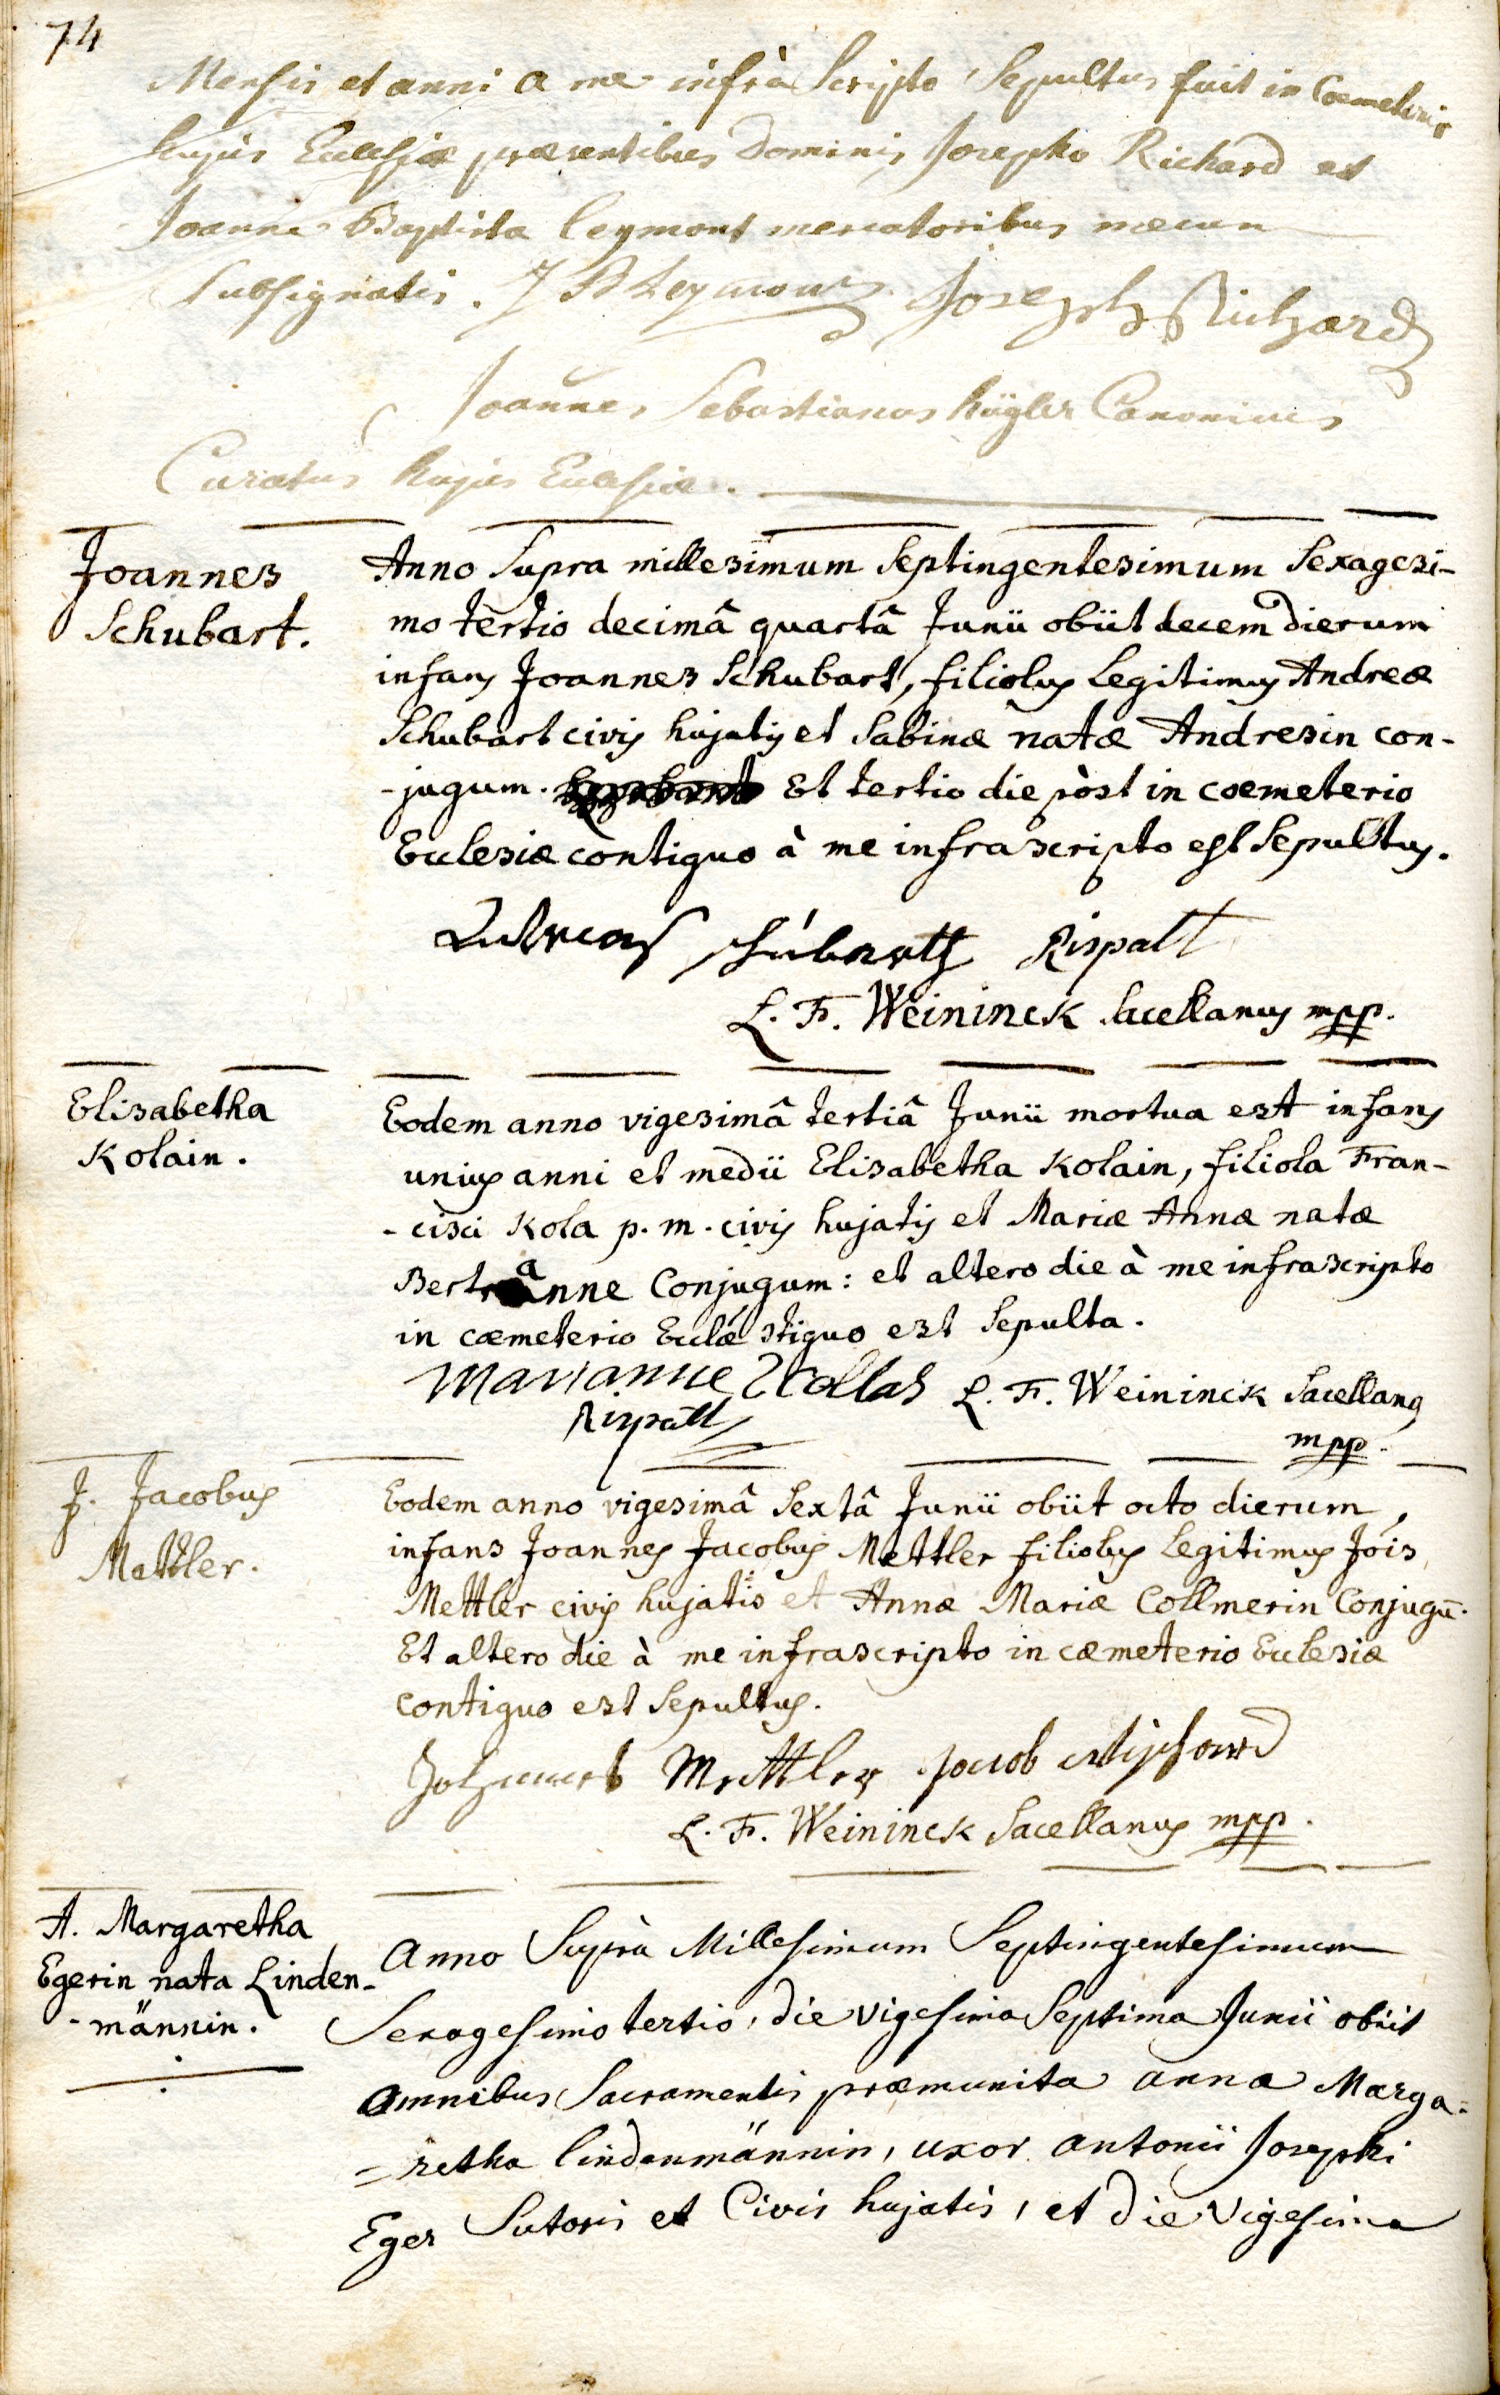 74
Mensis et anni a me infrà Scripto Sepultus fuit in Coemeterio
hujus Ecclesiæ præsentibus Dominis Josepho Richard et
Joanne Baptista Leymont mercatoribus mecum
Subsignatis. J B Leymont Joseph Richard
Joannes Sebastianus Kügler Canonicus
Curatus hujus Ecclesiæ.
Joannes
Schubart.
Anno Supra millesimum Septingentesimum Sexagesi-
mo tertio decimâ quartâ Junii obiit decem dierum
infans Joannes Schubart, filiolus Legitimus Andreæ
Schubart civis hujatis et Sabinæ natæ Andresin con-
-jugum. Et tertio die pòst in cœmeterio
Ecclesiæ contiguo à me infrascripto est Sepultus.
Schúbarth Rispalt
L. F. Weininck Sacellanus mpp.
Elisabetha
Kolain.
Eodem anno vigesimâ tertiâ Junii mortua est infans
unius anni et medii Elisabetha Kolain, filiola Fran-
-cisci Kola p. m. civis hujatis et Mariæ Annæ natæ
Bertranne Conjugum: et altero die à me infrascripto
in cæmeterio Ecclæ stiguo est Sepulta.
Marianne Kollas L. F. Weininck Sacellang
Rispalt
mpp.
J. Jacobus
Mettler.
Eodem anno vigesimâ Sextâ Junii obiit octo dierum,
infans Joannes Jacobus Mettler filiolus Legitimus Jois
Mettler civis hujatis et Annæ Mariæ Collmerin Conjugū.
Et altero die à me infrascripto in cæmeterio Ecclesiæ
contiguo est Sepultus.
Johannes Mettler Jacob
L. F. Weininck Sacellanus mpp.
A. Margaretha
Egerin nata Linden-
-männin.
Anno Suprà Millesimum Septingentesimum
Sexagesimo tertio, die vigesima Septima Junii obiit
Omnibus Sacramentis præmunita anna Marga=
=retha Lindenmännin, uxor antonii Josephi
Eger Sutoris et Civis hujatis, et die vigesima